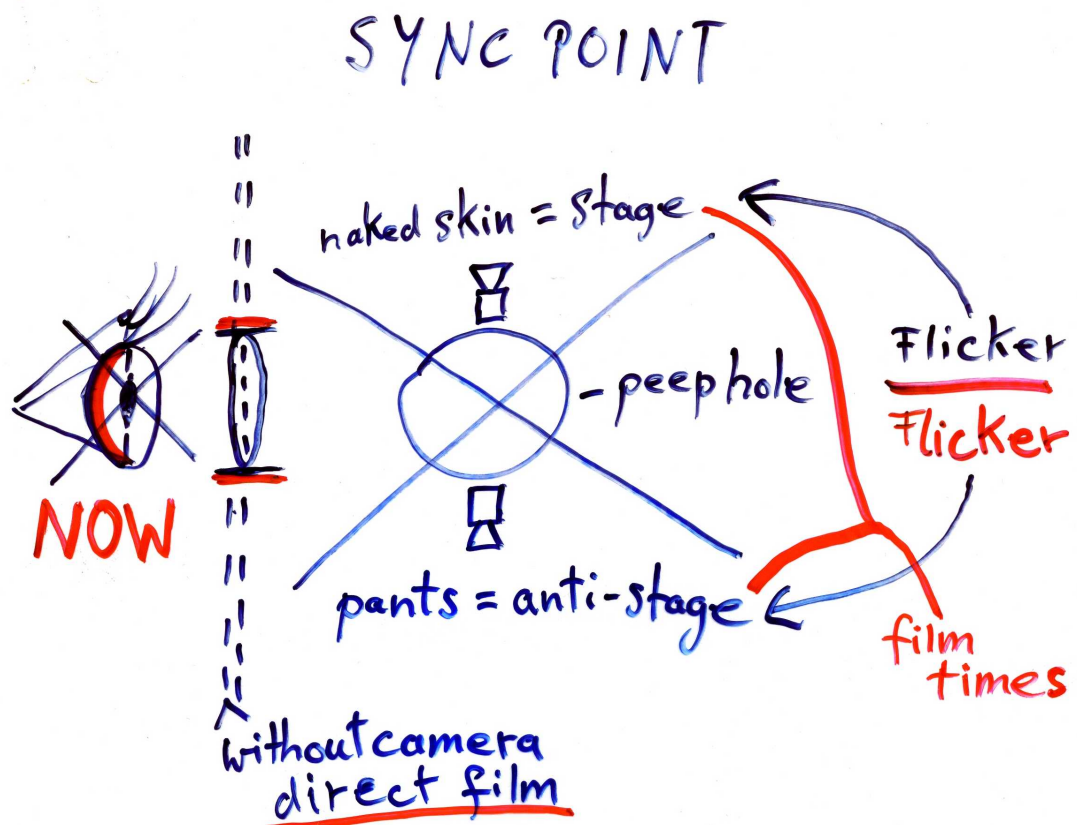 SYNC POINT
naked skin = stage
Flicker
Flicker
- peephole
NOW
pants = anti-stage
film
times
without camera
direct film